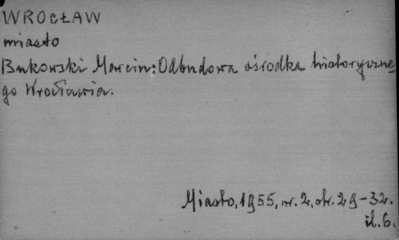 WROCŁAW
miasto
Bukowski Marcin: Odbudowa ośrodka historyczne
go Wrocławia.
Miasto, 1955, nr. 2, str. 29-32.
il. 6.